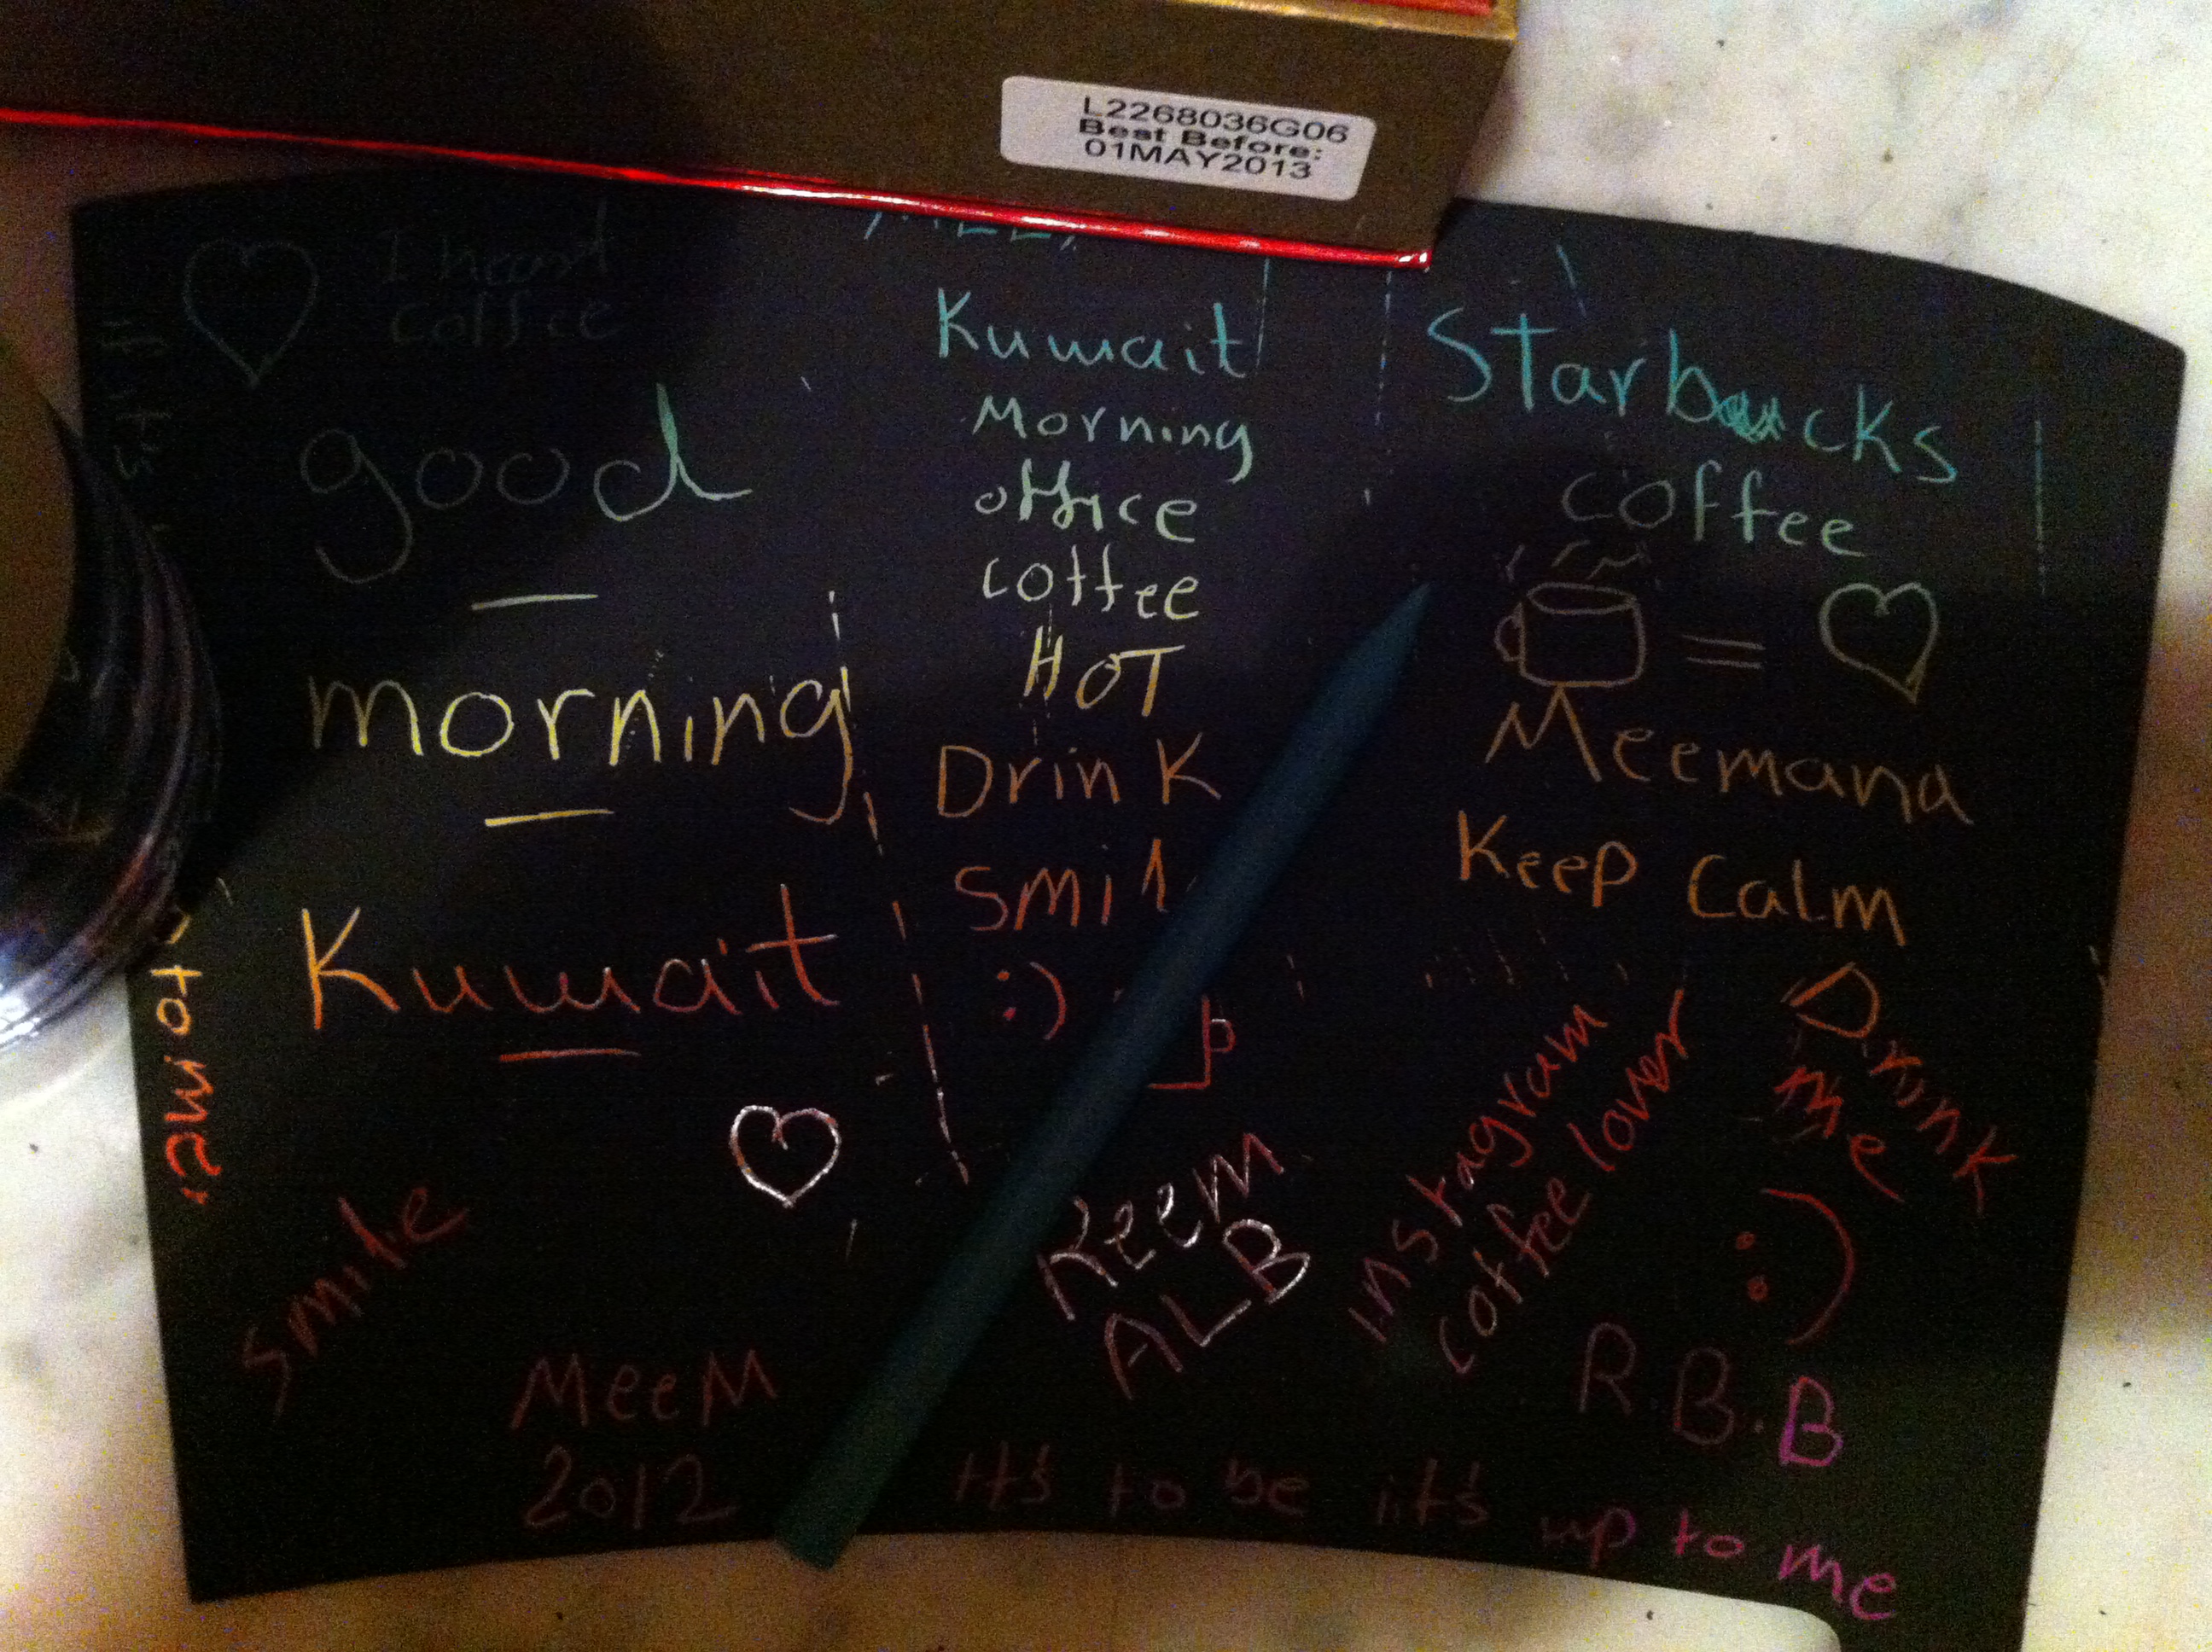 L2268036G06
Best Before:
01MAY2013
I heart
coffee
good
morning
Kuwait
smile
MeeM
2012
Kuwait
Morning
office
coffee
HOT
Drink
:)
Reem
ALB
Starbucks
coffee
=
Meemana
Keep Calm
Drink
me
instagram
coffee lover
:)
R.B.B
It's to be it's up to me
to me